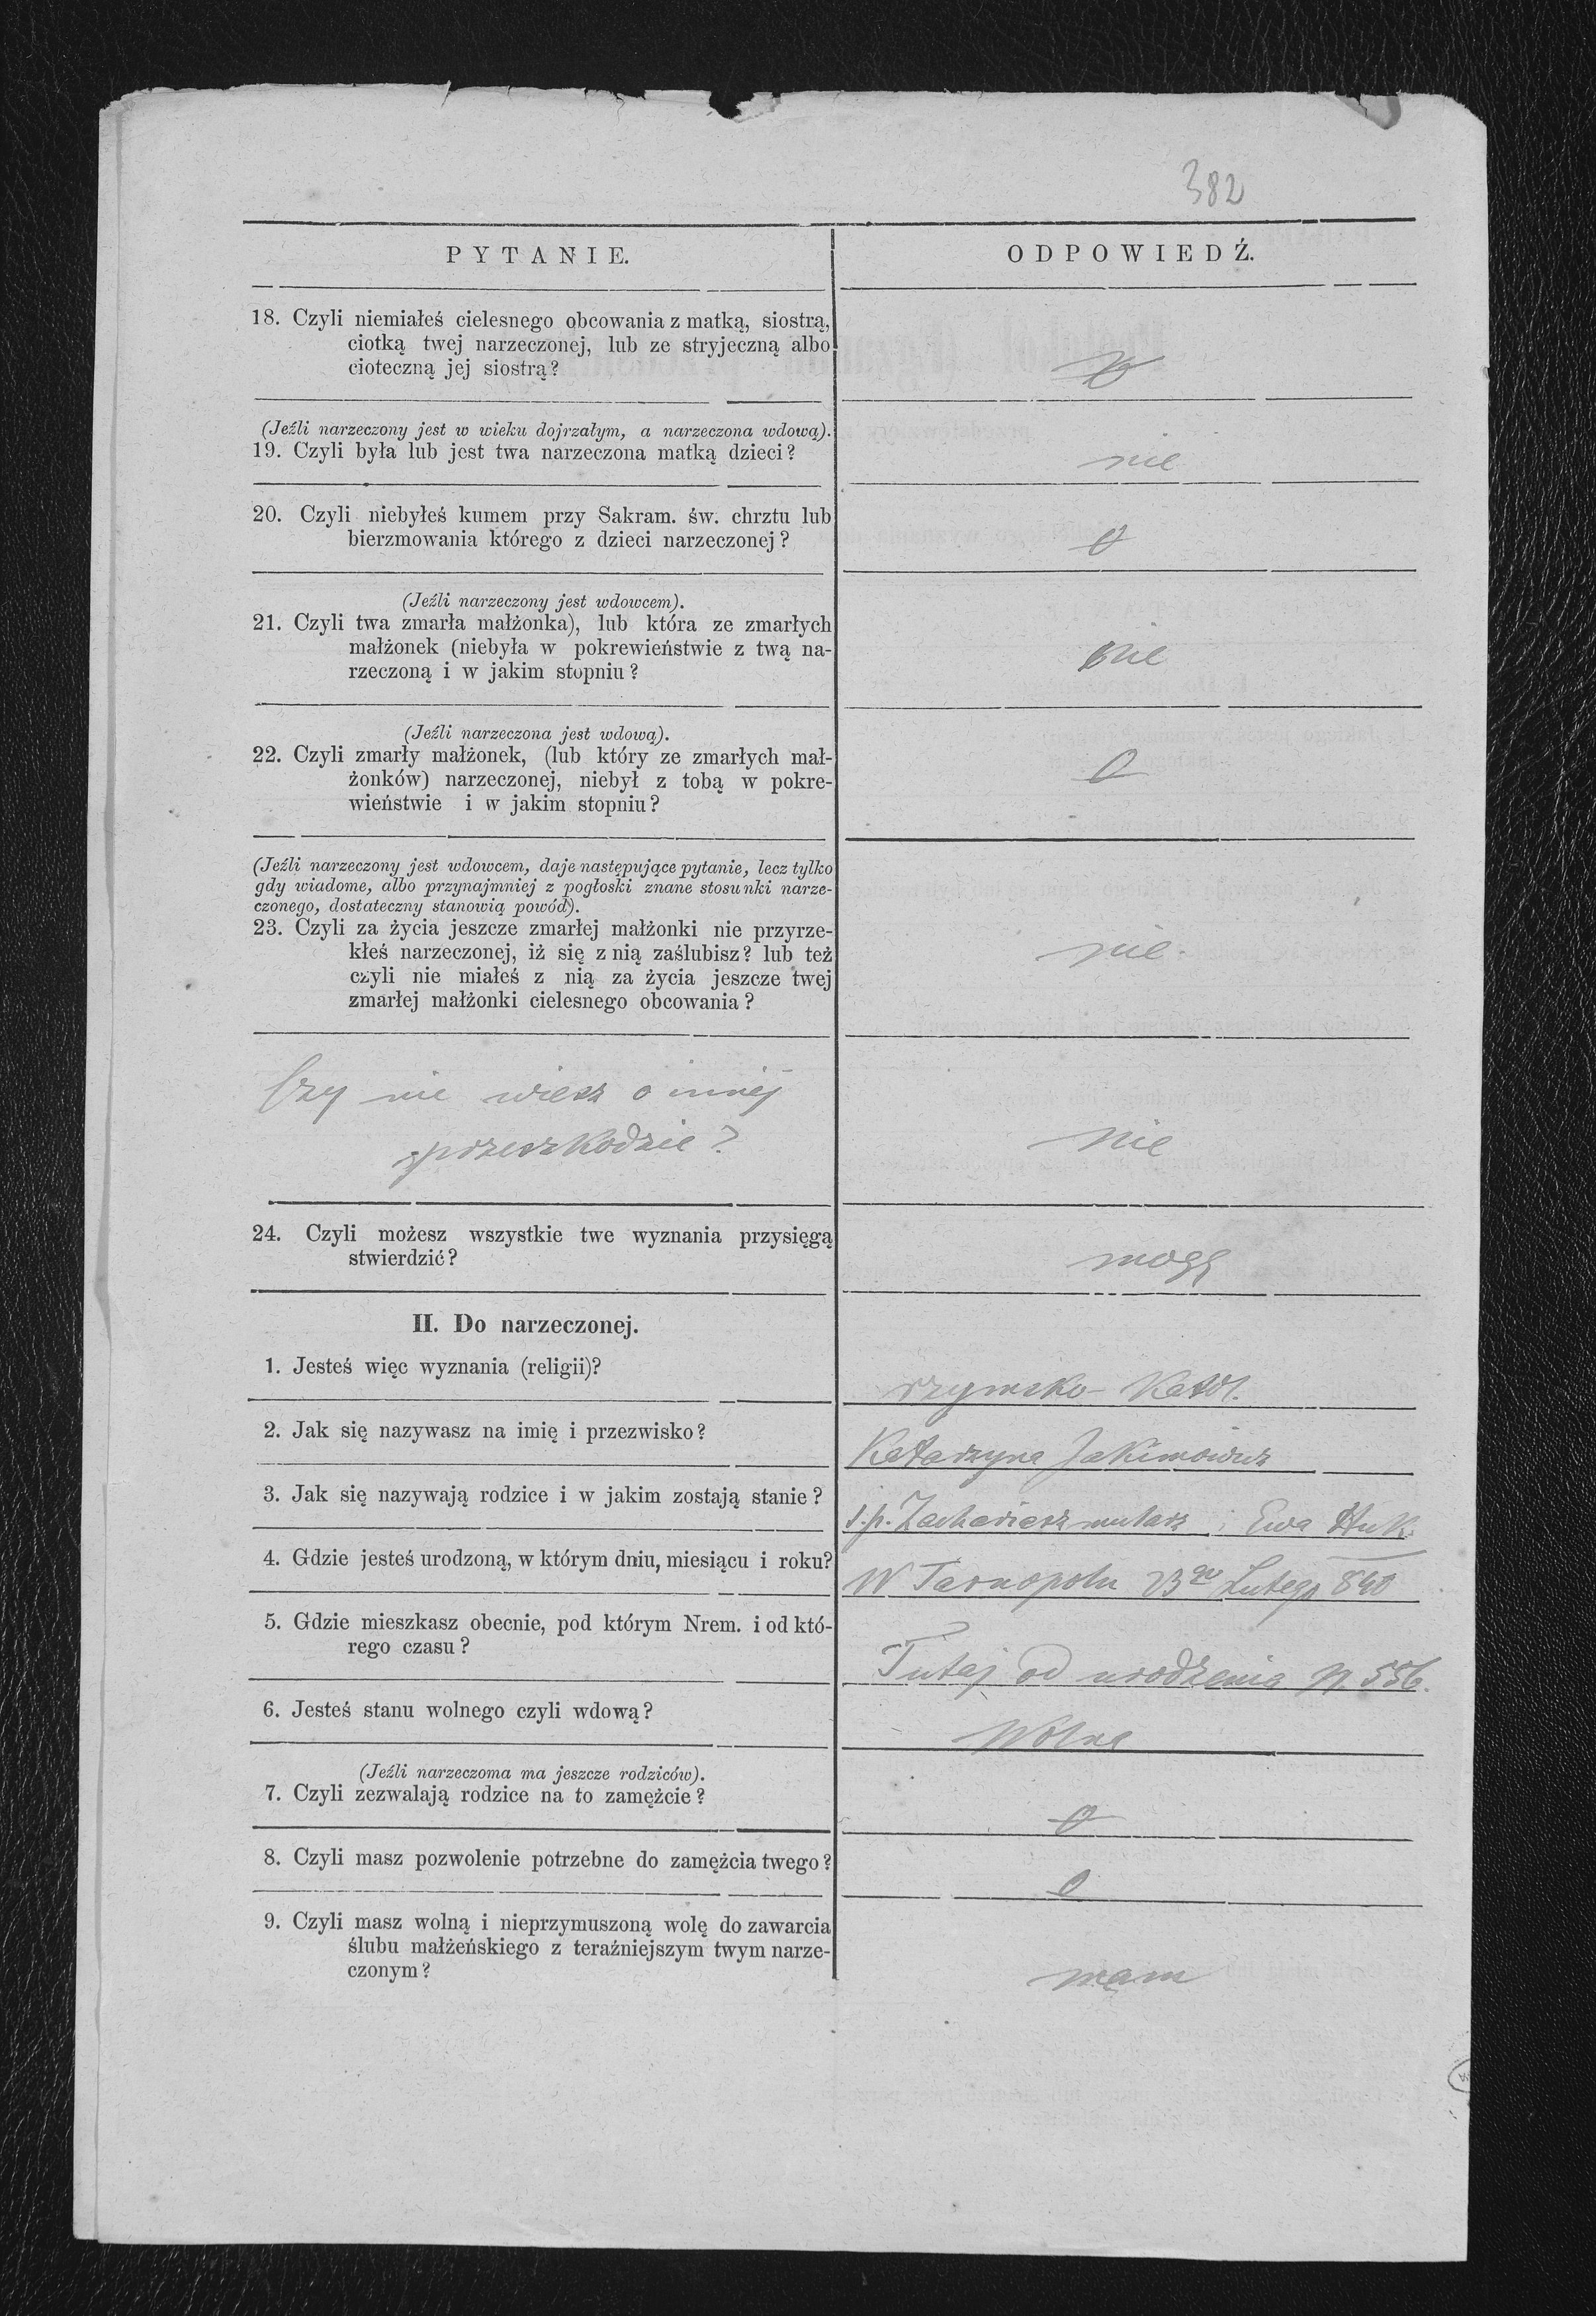 382
PYTANIE.
ODPOWIEDŹ.
18. Czyli niemiałeś cielesnego obcowania z matką, siostrą,
ciotką twej narzeczonej, lub ze stryjeczną albo
cioteczną jej siostrą?
(Jeźli narzeczony jest w wieku dojrzałym, a narzeczona wdową).
19. Czyli była lub jest twa narzeczona matką dzieci?
nie
20. Czyli niebyłeś kumem przy Sakram. św. chrztu lub
bierzmowania którego z dzieci narzeczonej?
0
(Jeźli narzeczony jest wdowcem).
21. Czyli twa zmarła małżonka), lub która ze zmarłych
małżonek (niebyła w pokrewieństwie z twą na-
rzeczoną i w jakim stopniu?
nie
(Jeźli narzeczona jest wdową).
22. Czyli zmarły małżonek, (lub który ze zmarłych mał-
żonków) narzeczonej, niebył z tobą w pokre-
wieństwie i w jakim stopniu?
0
(Jeźli narzeczony jest wdowcem, daje następujące pytanie, lecz tylko
gdy wiadome, albo przynajmniej z pogłoski znane stosunki narze-
czonego, dostateczny stanowią powód).
23. Czyli za życia jeszcze zmarłej małżonki nie przyrze-
kłeś narzeczonej, iż się z nią zaślubisz? lub też
czyli nie miałeś z nią za życia jeszcze twej
zmarłej małżonki cielesnego obcowania?
nie.
Czy nie wiesz o innej
przeszkodzie?
nie
24. Czyli możesz wszystkie twe wyznania przysięgą
stwierdzić?
mogę
II. Do narzeczonej.
1. Jesteś więc wyznania (religii)?
rzymsko-Katol.
2. Jak się nazywasz na imię i przezwisko?
Katarzyna Jakimowicz
3. Jak się nazywają rodzice i w jakim zostają stanie?
ś.p. Zachariasz mularz i Ewa Huk.
4. Gdzie jesteś urodzoną, w którym dniu, miesiącu i roku?
W Tarnopolu 23go Lutego 840
5. Gdzie mieszkasz obecnie, pod którym Nrem. i od któ-
rego czasu?
Tutaj od urodzenia N 556.
6. Jesteś stanu wolnego czyli wdową?
Wolna
(Jeźli narzeczoma ma jeszcze rodziców).
7. Czyli zezwalają rodzice na to zamężcie?
0
8. Czyli masz pozwolenie potrzebne do zamężcia twego?
0
9. Czyli masz wolną i nieprzymuszoną wolę do zawarcia
ślubu małżeńskiego z teraźniejszym twym narze-
czonym?
mam